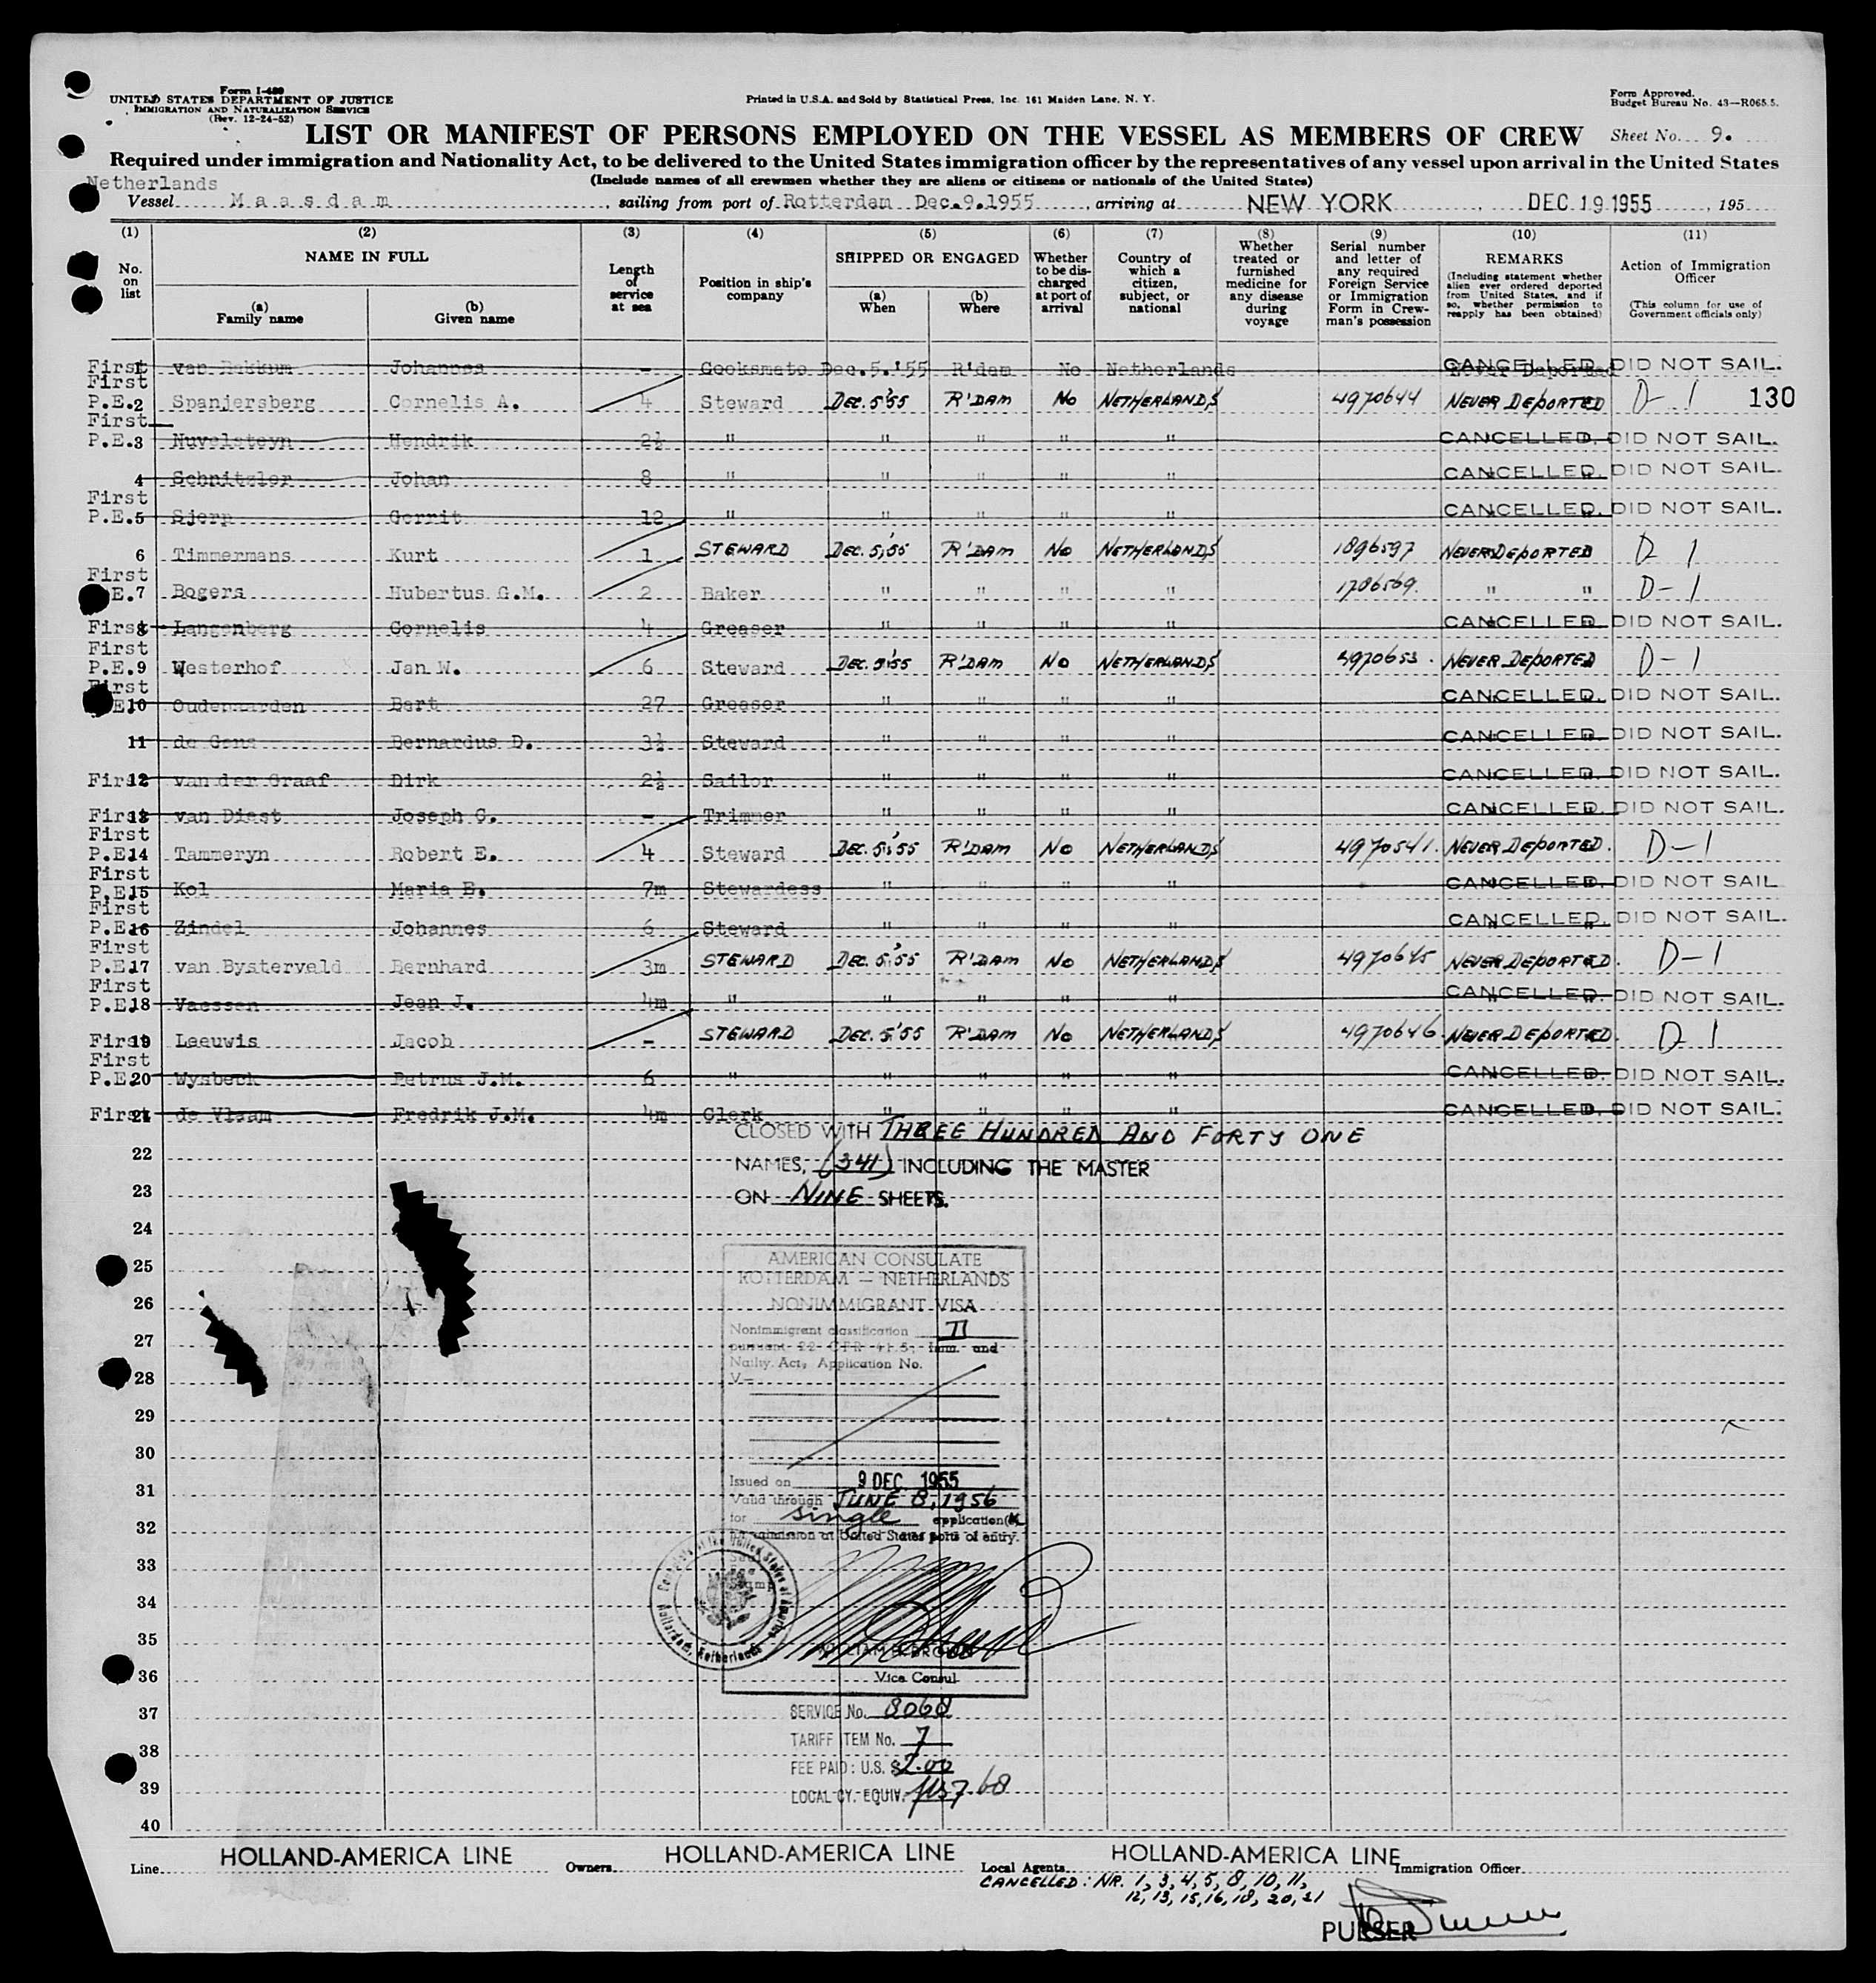 Form I-489
UNITED STATES DEPARTMENT OF JUSTICE
IMMIGRATION AND NATURALIZATION SERVICE
(Rev. 12-24-52)
Printed in U.S.A. and Sold by Statistical Press, Inc. 161 Maiden Lane, N. Y.
Form Approved.
Budget Bureau No. 43—R065.5.
LIST OR MANIFEST OF PERSONS EMPLOYED ON THE VESSEL AS MEMBERS OF CREW
Sheet No. 9.
Required under immigration and Nationality Act, to be delivered to the United States immigration officer by the representatives of any vessel upon arrival in the United States
(Include names of all crewmen whether they are aliens or citizens or nationals of the United States)
Netherlands
Vessel Maasdam, sailing from port of Rotterdam Dec.9.1955, arriving at NEW YORK, DEC 19 1955, 195
(1) (2) (3) (4) (5) (6) (7) (8) (9) (10) (11)
No. on list
NAME IN FULL
(a) Family name
(b) Given name
Length of service at sea
Position in ship's company
SHIPPED OR ENGAGED
(a) When
(b) Where
Whether to be discharged at port of arrival
Country of which a citizen, subject, or national
Whether treated or furnished medicine for any disease during voyage
Serial number and letter of any required Foreign Service or Immigration Form in Crewman's possession
REMARKS
(Including statement whether alien ever ordered deported from United States, and if so, whether permission to reapply has been obtained)
Action of Immigration Officer
(This column for use of Government officials only)
First 1 van Bekkum Johannes - Cooksmate Dec.5.'55 R'dam No Netherlands Never Deported CANCELLED. DID NOT SAIL.
First
P.E.2 Spanjersberg Cornelis A. 4 Steward DEC. 5'55 R'DAM No NETHERLANDS 4970644 NEVER DEPORTED D-1 130
First
P.E.3 Nuvelsteyn Hendrik 2½ " " " " " CANCELLED. DID NOT SAIL.
4 Schnitzler Johan 8 " " " " " CANCELLED. DID NOT SAIL.
First
P.E.5 Sjerp Gerrit 12 " " " " " CANCELLED. DID NOT SAIL.
6 Timmermans Kurt 1 STEWARD DEC. 5,'55 R'DAM No NETHERLANDS 1896597 NEVER DEPORTED D-1
First
P.E.7 Bogers Hubertus G.M. 2 Baker " " " " 1786569. " " D-1
First 8 Langenberg Cornelis 4 Greaser " " " " CANCELLED. DID NOT SAIL.
First
P.E.9 Westerhof Jan W. 6 Steward DEC. 5'55 R'DAM No NETHERLANDS 4970653. NEVER DEPORTED D-1
First
P.E.10 Oudenaarden Bart 27 Greaser " " " " CANCELLED. DID NOT SAIL.
11 de Gans Bernardus D. 3½ Steward " " " " CANCELLED. DID NOT SAIL.
First 12 van der Graaf Dirk 2½ Sailor " " " " CANCELLED. DID NOT SAIL.
First 13 van Diest Joseph C. - Trimmer " " " " CANCELLED. DID NOT SAIL.
First
P.E.14 Tammeryn Robert E. 4 Steward DEC. 5,'55 R'DAM No NETHERLANDS 4970541. NEVER DEPORTED. D-1
First
P.E.15 Kol Maria E. 7m Stewardess " " " " CANCELLED. DID NOT SAIL
First
P.E.16 Zindel Johannes 6 Steward " " " " CANCELLED. DID NOT SAIL.
First
P.E.17 van Bysterveld Bernhard 3m STEWARD DEC. 5,'55 R'DAM No NETHERLANDS 4970645 NEVER DEPORTED. D-1
First
P.E.18 Vaessen Jean J. 4m " " " " " CANCELLED. DID NOT SAIL.
First 19 Leeuwis Jacob - STEWARD DEC. 5,'55 R'DAM No NETHERLANDS 4970646. NEVER DEPORTED. D-1
First
P.E.20 Wysbeck Petrus J.M. 6 " " " " " CANCELLED. DID NOT SAIL.
First 21 de Vlaam Fredrik J.M. 4m Clerk " " " " CANCELLED. DID NOT SAIL.
CLOSED WITH THREE HUNDRED AND FORTY ONE
22 NAMES, (341) INCLUDING THE MASTER
23 ON NINE SHEETS.
24
25 AMERICAN CONSULATE
ROTTERDAM — NETHERLANDS
26 NONIMMIGRANT VISA
27 Nonimmigrant classification D
pursuant 22 CFR 41.5, Imm. and
Natlty. Act, Application No.
28 V—
29
30
31 Issued on 9 DEC 1955
Valid through JUNE 8, 1956
32 for single application(s)
for admission at United States ports of entry.
33
Consulate of the United States of America
34
Rotterdam, Netherlands
35 WILLIAM B. BROWN
36 Vice Consul
37 SERVICE No. 8068
38 TARIFF ITEM No. 7
FEE PAID: U.S. $2.00
39 LOCAL CY. EQUIV. 7.68
40
Line HOLLAND-AMERICA LINE Owners HOLLAND-AMERICA LINE Local Agents HOLLAND-AMERICA LINE Immigration Officer
CANCELLED: NR. 1, 3, 4, 5, 8, 10, 11,
12, 13, 15, 16, 18, 20, 21
PURSER